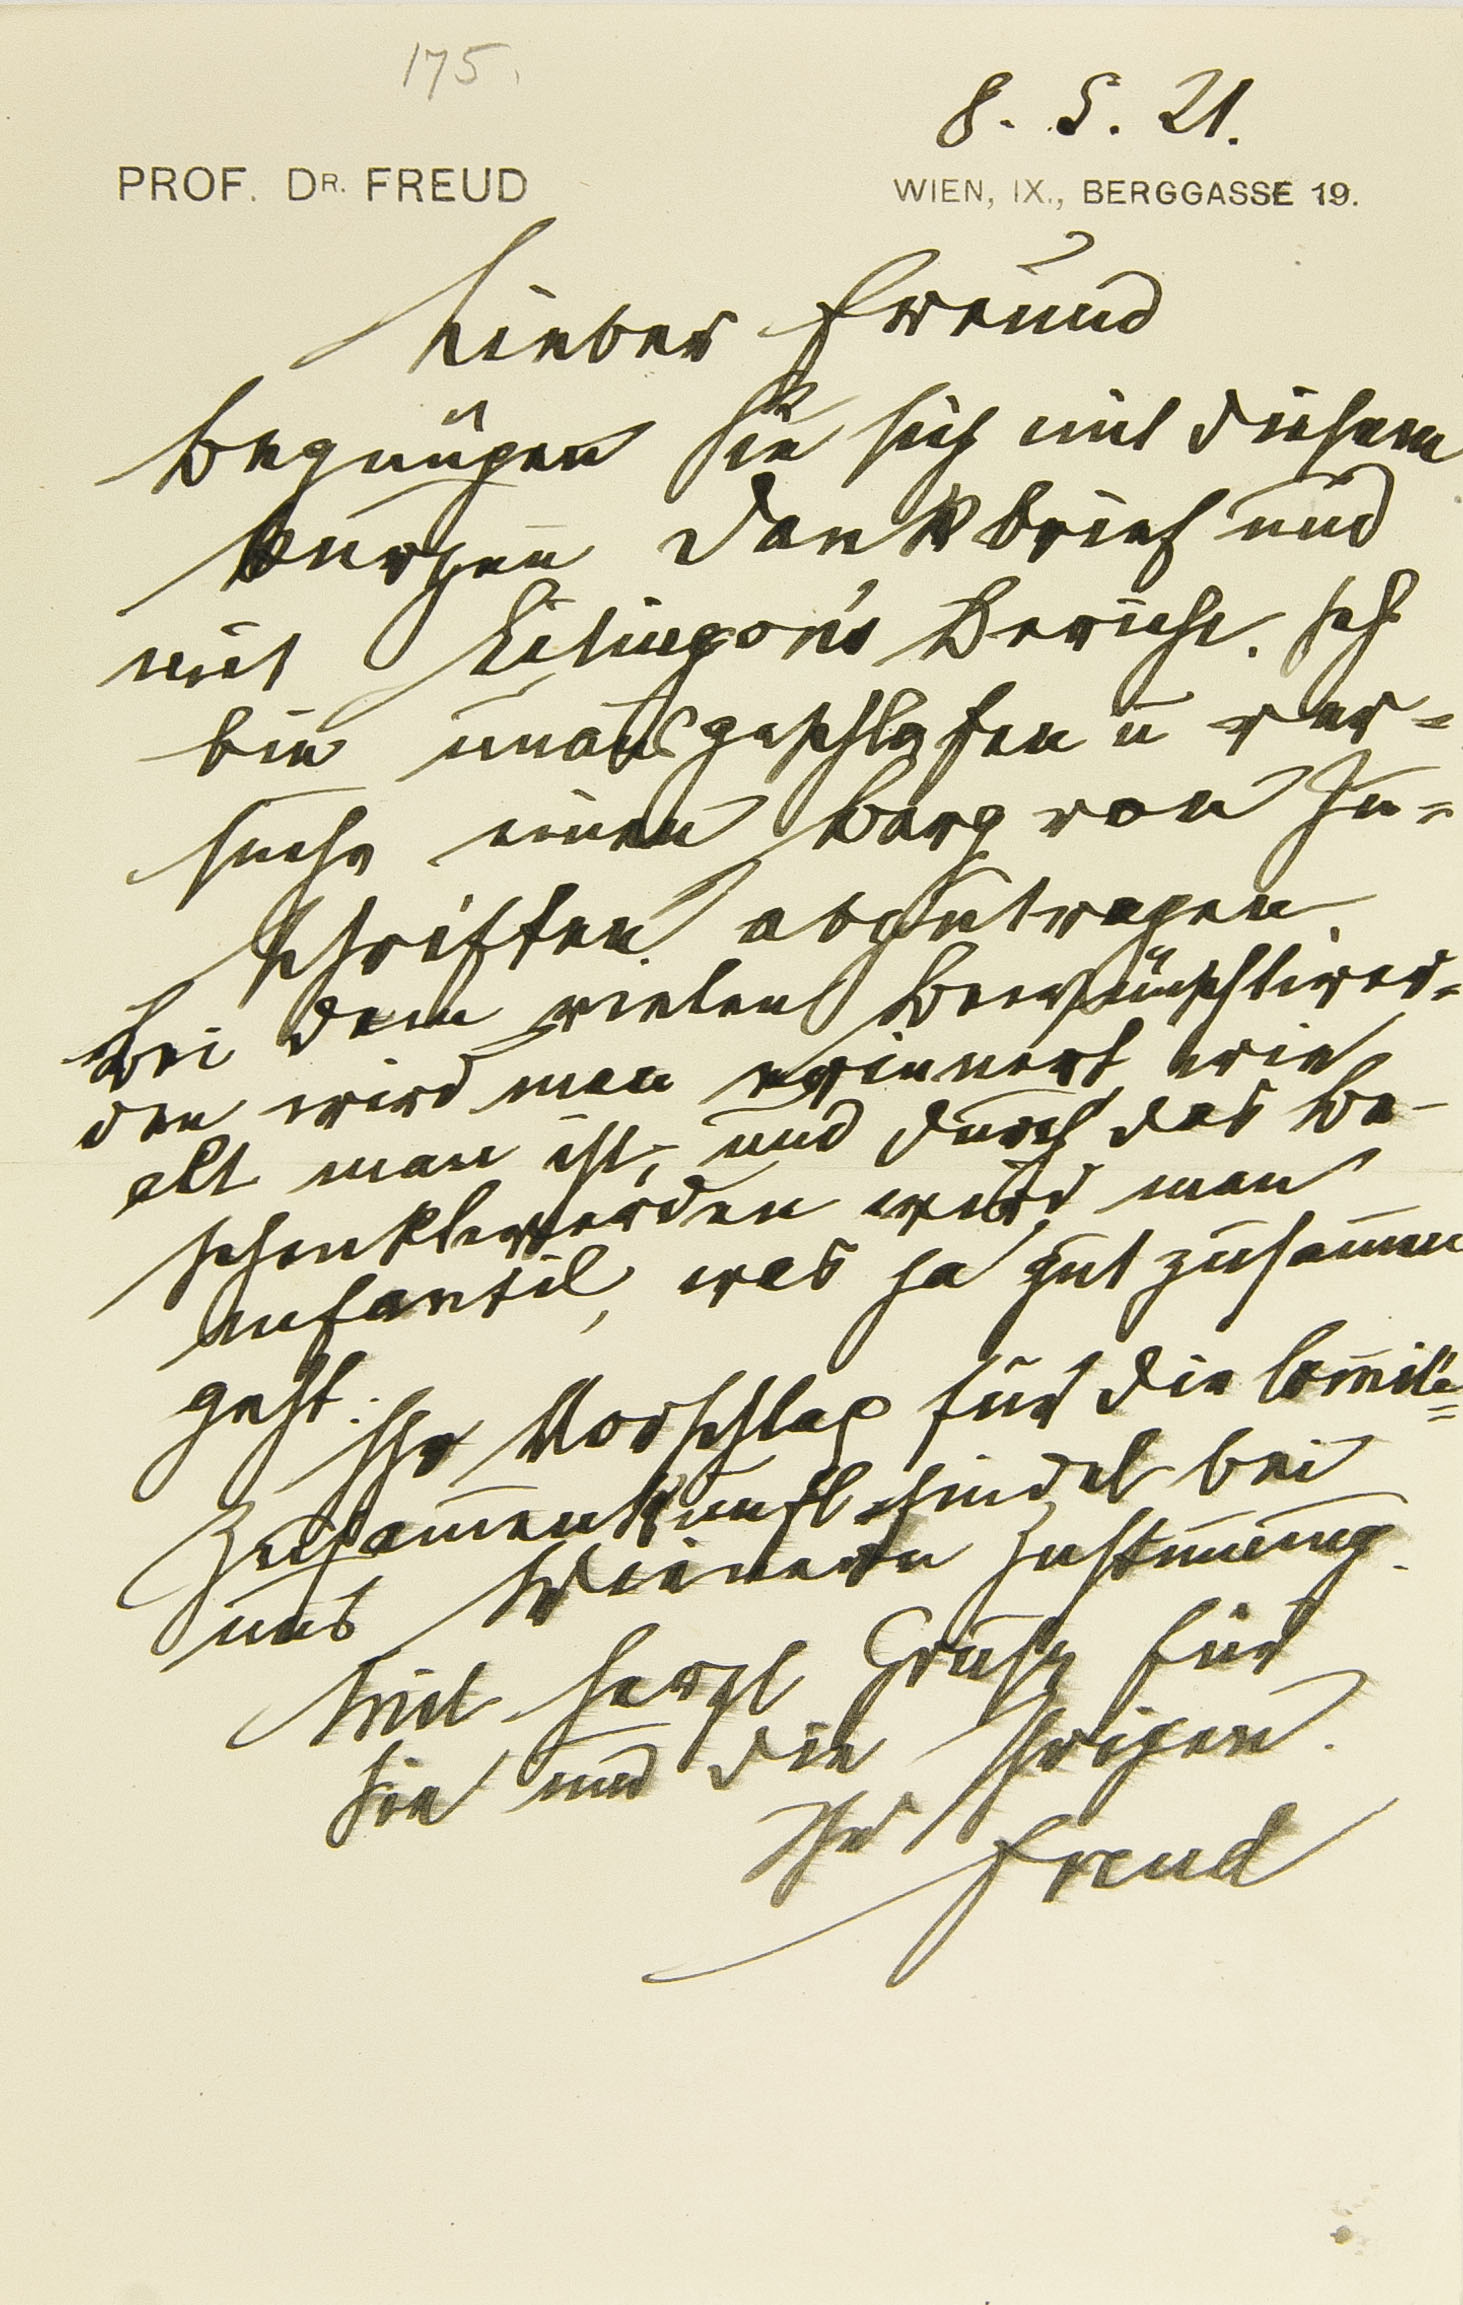 175.
8. 5. 21.
PROF. DR. FREUD
WIEN, IX., BERGGASSE 19.
Lieber Freund
Begnügen Sie sich mit diesem
kurzen Dankbrief und
mit Eitingon's Bericht. Ich
bin unausgeschlafen u ver-
suche einen Berg von Zu-
schriften abzutragen.
Bei dem vielen Beglückwünschtwer-
den wird man erinnert wie
alt man ist, und durch das Be-
schenktwerden wird man
infantil, was ja gut zusammen
geht.
Ihr Vorschlag für die Comité-
Zusammenkunft findet bei
uns Wienern Zustimmung.
Mit herzl Gruß für
Sie und die Ihrigen.
Ihr Freud